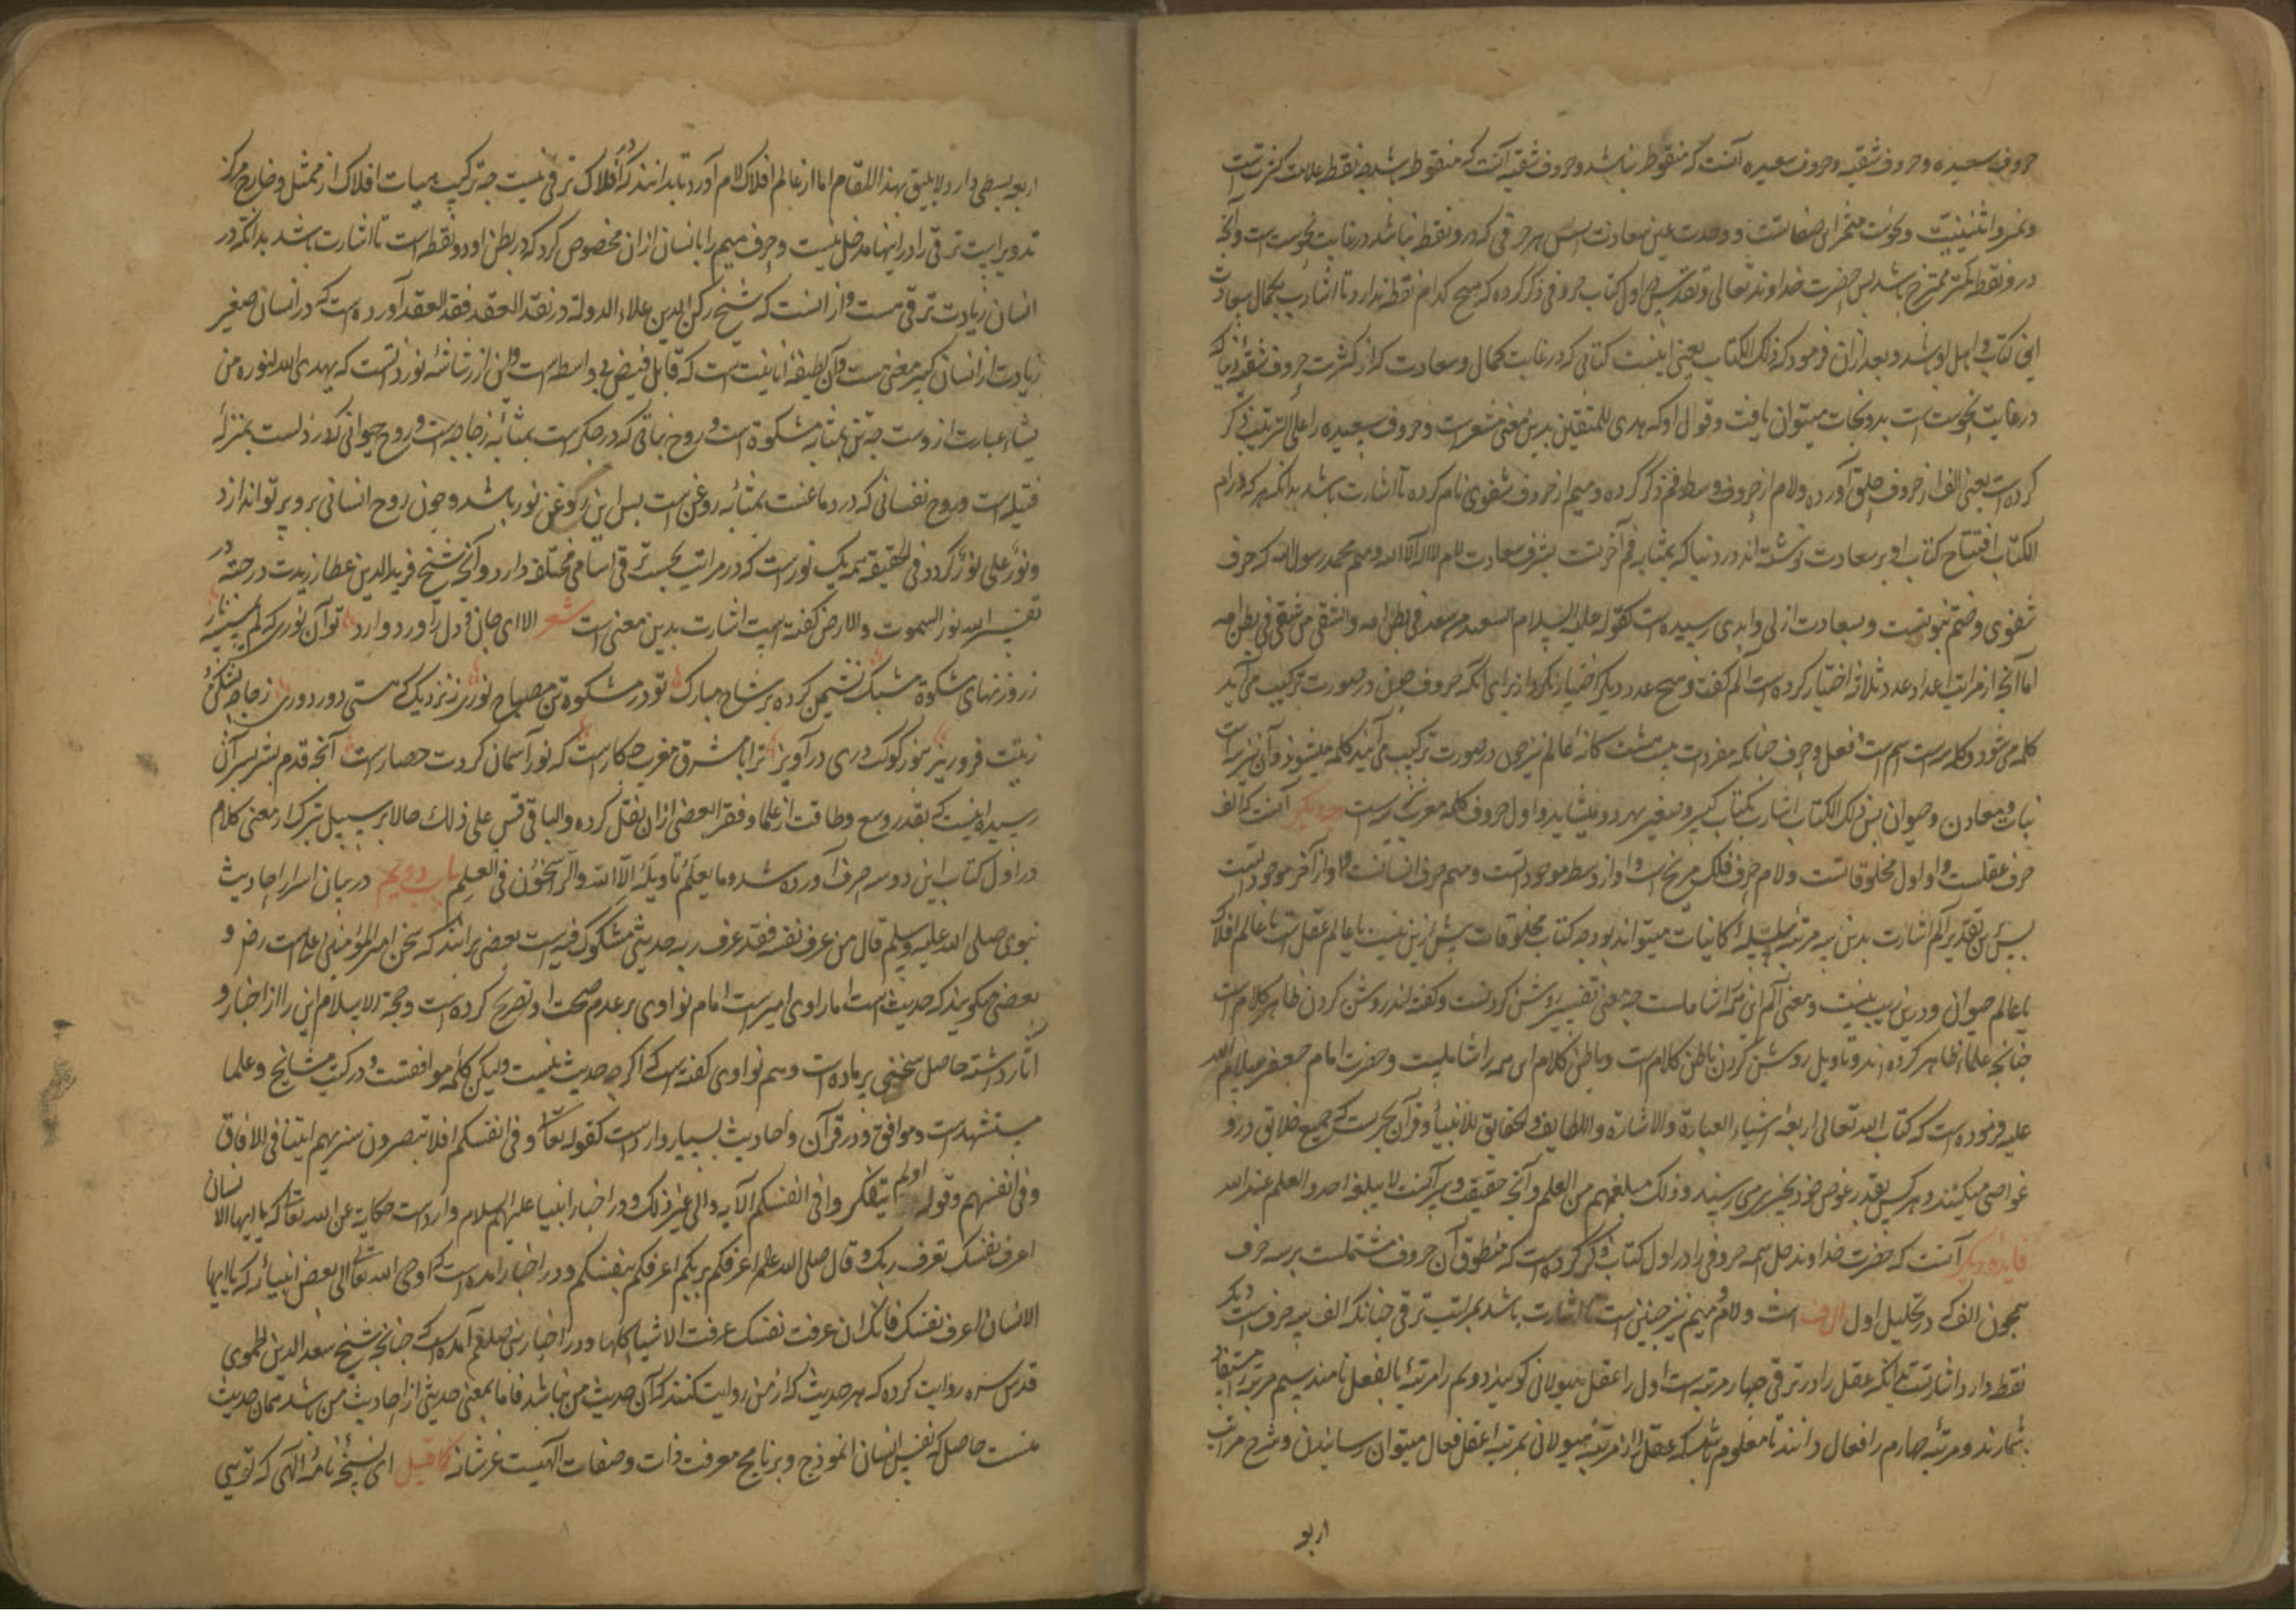 حروف سعیده و حروف شقیه و حروف سعیده آنست که منقوط نباشد و حروف شقیه آنست که منقوط باشد چه نقطه علامت کثرتست
و تمییز واثنینیت و نحوست مثمر این صفاتست و وحدت عین سعادت پس هر حرفی که درو نقطه نباشد در غایت نحوست است و آنچه
درو نقطه کمتر ممتزج باشد پس حضرت خداوند تعالی و تقدس در اول کتاب حروفی ذکر کرده که هیچ کدام نقطه ندارد تا اشارت بکمال سعادت
این کتاب و اهل او باشد و بعد ازان فرمود که ذلک الکتاب یعنی اینست کتابی که در غایت کمال و سعادت که از کثرت حروف شقیه دنیا که
در غایت نحوست است بدو نجات میتوان یافت و قول او که هدی للمتقین بدین معنی مشعر است و حروف سعیده را علی الترتیب ذکر
کرده است یعنی الف از حروف حلق آورده و لام از حروف وسط فم ذکر کرده و میم از حروف شفوی نام کرده تا اشارت باشد بدانکه هر که در ام
الکتاب افتتاح کتاب او بر سعادت نوشته اند در دنیا که بمثابه فم آخرتست بشرف سعادت لام لا اله الا الله و میم محمد رسول الله که حرف
شفوی و ختم نبوتست و بسعادت ازلی و ابدی رسیده است کقوله علیه السلام السعید من سعد فی بطن امه والشقی من شقی فی بطن امه
اما آنچه از مراتب اعداد عدد ثلاثه اختیار کرده است الم گفت و هیچ عدد دیگر اختیار نکرد از برای آنکه حروف چون در صورت ترکیب می آید
کلمه می شود و کلمه سه است اسم است و فعل و حرف چنانکه مفردات بیست و هشت گانه عالم نیز چون در صورت ترکیب می آیند کلمه میشوند و آن نیز سه است
نبات و معادن و حیوان پس ذلک الکتاب اشارت بکتاب کبیر و صغیر هر دو میشاید و اول حروف کلمه معرب نیز سه است وجه دیگر آنست که الف
حرف عقلست و او اول مخلوقاتست و لام حرف فلک مریخ است و او از وسط موجوداتست و میم حرف انسانست و او از آخر موجوداتست
پس برین تقدیر الم اشارت بدین سه مرتبه سلسله کاینات میتواند بود چه کتاب مخلوقات بیش ازین نیست یا عالم عقل است یا عالم افلاک
یا عالم حیوان و درین ریب نیست و معنی الم این همه را شاملست چه معنی تفسیر روشن کردنست و گفته اند روشن کردن ظاهر کلام است
چنانچه علماء ظاهر کرده اند و تاویل روشن کردن باطن کلام است و باطن کلام این همه را شاملست و حضرت امام جعفر سلام الله
علیه فرموده است که کتاب الله تعالی اربعة اشیاء العبارة والاشارة واللطایف والحقایق للانبیاء و قرآن بحریست که جمیع خلایق درو
غواصی میکنند و هر کس بقدر غوص خود بچیزی می رسند و ذلک مبلغهم من العلم و آنچه حقیقت و سر آنست لا یبلغه احد والعلم عند الله
فایده دیگر آنست که حضرت خداوند جل اسمه حروفی را در اول کتاب ذکر کرده است که منطوق آن حروف مشتملست بر سه حرف
همچون الف که در تحلیل اول ال ف است و لام و میم نیز چنین است تا اشارت باشد بمراتب ترقی چنانکه الف سه حرف است و دیگر
نقطه دارد اشارتست بآنکه عقل را در ترقی چهار مرتبه است اول را عقل هیولانی گویند دویم را مرتبه بالفعل نامند سیم مرتبه مستفاد
شمارند و مرتبه چهارم را فعال دانند تا معلوم باشد که عقل را از مرتبه هیولانی بمرتبه عقل فعال میتوان رسانیدن و شرح مراتب
اربع
اربعه بسطی دارد لا یلیق بهذا المقام اما از عالم افلاک لام آورد تا بدانند که در افلاک ترقی نیست چه ترکیب هیات افلاک از ممثل و خارج مرکز
تدویر است ترقی را در اینها مدخل نیست و حرف میم را بانسان ازان مخصوص کرد که در بطن او دو نقطه است تا اشارت باشد بدانکه در
انسان زیادت ترقی هست و از آنست که شیخ رکن الدین علاء الدولة در نقد العقد فقد العقد آورده است که در انسان صغیر
زیادت از انسان کبیر معنی هست و آن لطیفه انانیت است که قابل فیض بی واسطه است و این از رشاشه نور ذاتست که یهدی الله لنوره من
یشاء عبارت از وست چه تن بمثابه مشکوة است و روح نباتی که در جگر است بمثابه زجاجه است و روح حیوانی که در دلست بمنزله
فتیله است و روح نفسانی که در دماغست بمثابه روغن است پس این روغن نور باشد و چون روح انسانی برو پرتو اندازد
و نور علی نور گردد فی الحقیقه همه یک نور است که در مراتب بحسب ترقی اسامی مختلفه دارد و آنچه شیخ فرید الدین عطار زیدت درجته در
تفسیر الله نور السموات والارض گفته است اشارت بدین معنی است شعر الا ای جان و دل را درد و دارو تو آن نوری که لم تمسسه نار
ز روزنهای مشکوة مشبک نشیمن کرده بر شاخ مبارک تو در مشکوة تن مصباح نوری ز نزدیکی که هستی دور دوری زجاجه بشکن و
زیتت فرو ریز بنور کوکب دری در آویز ترا با مشرق و مغرب چکار است که نور آسمان گردت حصار است آنچه قدم بشر بسر آن
رسیده اینست که بقدر وسع و طاقت از علما و فقرا بعضی ازان نقل کرده والباقی قس علی ذلک حالا بر سبیل تبرک از معنی کلام
در اول کتاب این دو سه حرف آورده شد و ما یعلم تاویله الا الله والراسخون فی العلم باب دویم در بیان اسرار احادیث
نبوی صلی الله علیه وسلم قال من عرف نفسه فقد عرف ربه حدیثی مشکوک فیه است بعضی برانند که سخن امیر المؤمنین علی است رض و
بعضی میگویند که حدیث است اما راوی امیر است امام نواوی بر عدم صحت او تصریح کرده است و حجة الاسلام این را از اخبار و
آثار داشته حاصل سخنی پر ماده است و هم نواوی گفته است که اگر چه حدیث نیست ولیکن کلمه موافقتست و در کتب مشایخ و علما
مستشهد است و موافق و در قرآن و احادیث بسیار وارد است کقوله تعالی و فی انفسکم افلا تبصرون سنریهم ایتنا فی الافاق
و فی انفسهم و قوله اولم یتفکروا فی انفسکم الآیه والی غیر ذلک و در اخبار انبیا علیهم السلام وارد است حکایة عن الله تعالی که یا ایها الانسان
اعرف نفسک تعرف ربک و قال صلی الله علیه اعرفکم بربکم اعرفکم بنفسکم و در اخبار آمده است که اوحی الله تعالی الی بعض انبیائه که یا ایها
الانسان اعرف نفسک فانک ان عرفت نفسک عرفت الاشیا کلها و در اخبار نبی صلعم آمده است که چنانچه شیخ سعد الدین الحموی
قدس سره روایت کرده که هر حدیث که از من روایت کنند که آن حدیث من نباشد فاما بمعنی حدیثی از احادیث من باشد همان حدیث
منست حاصل که نفس انسان انموذج و برنامج معرفت ذات و صفات الهیست عز شانه کما قیل ای نسخه نامه الهی که تویی